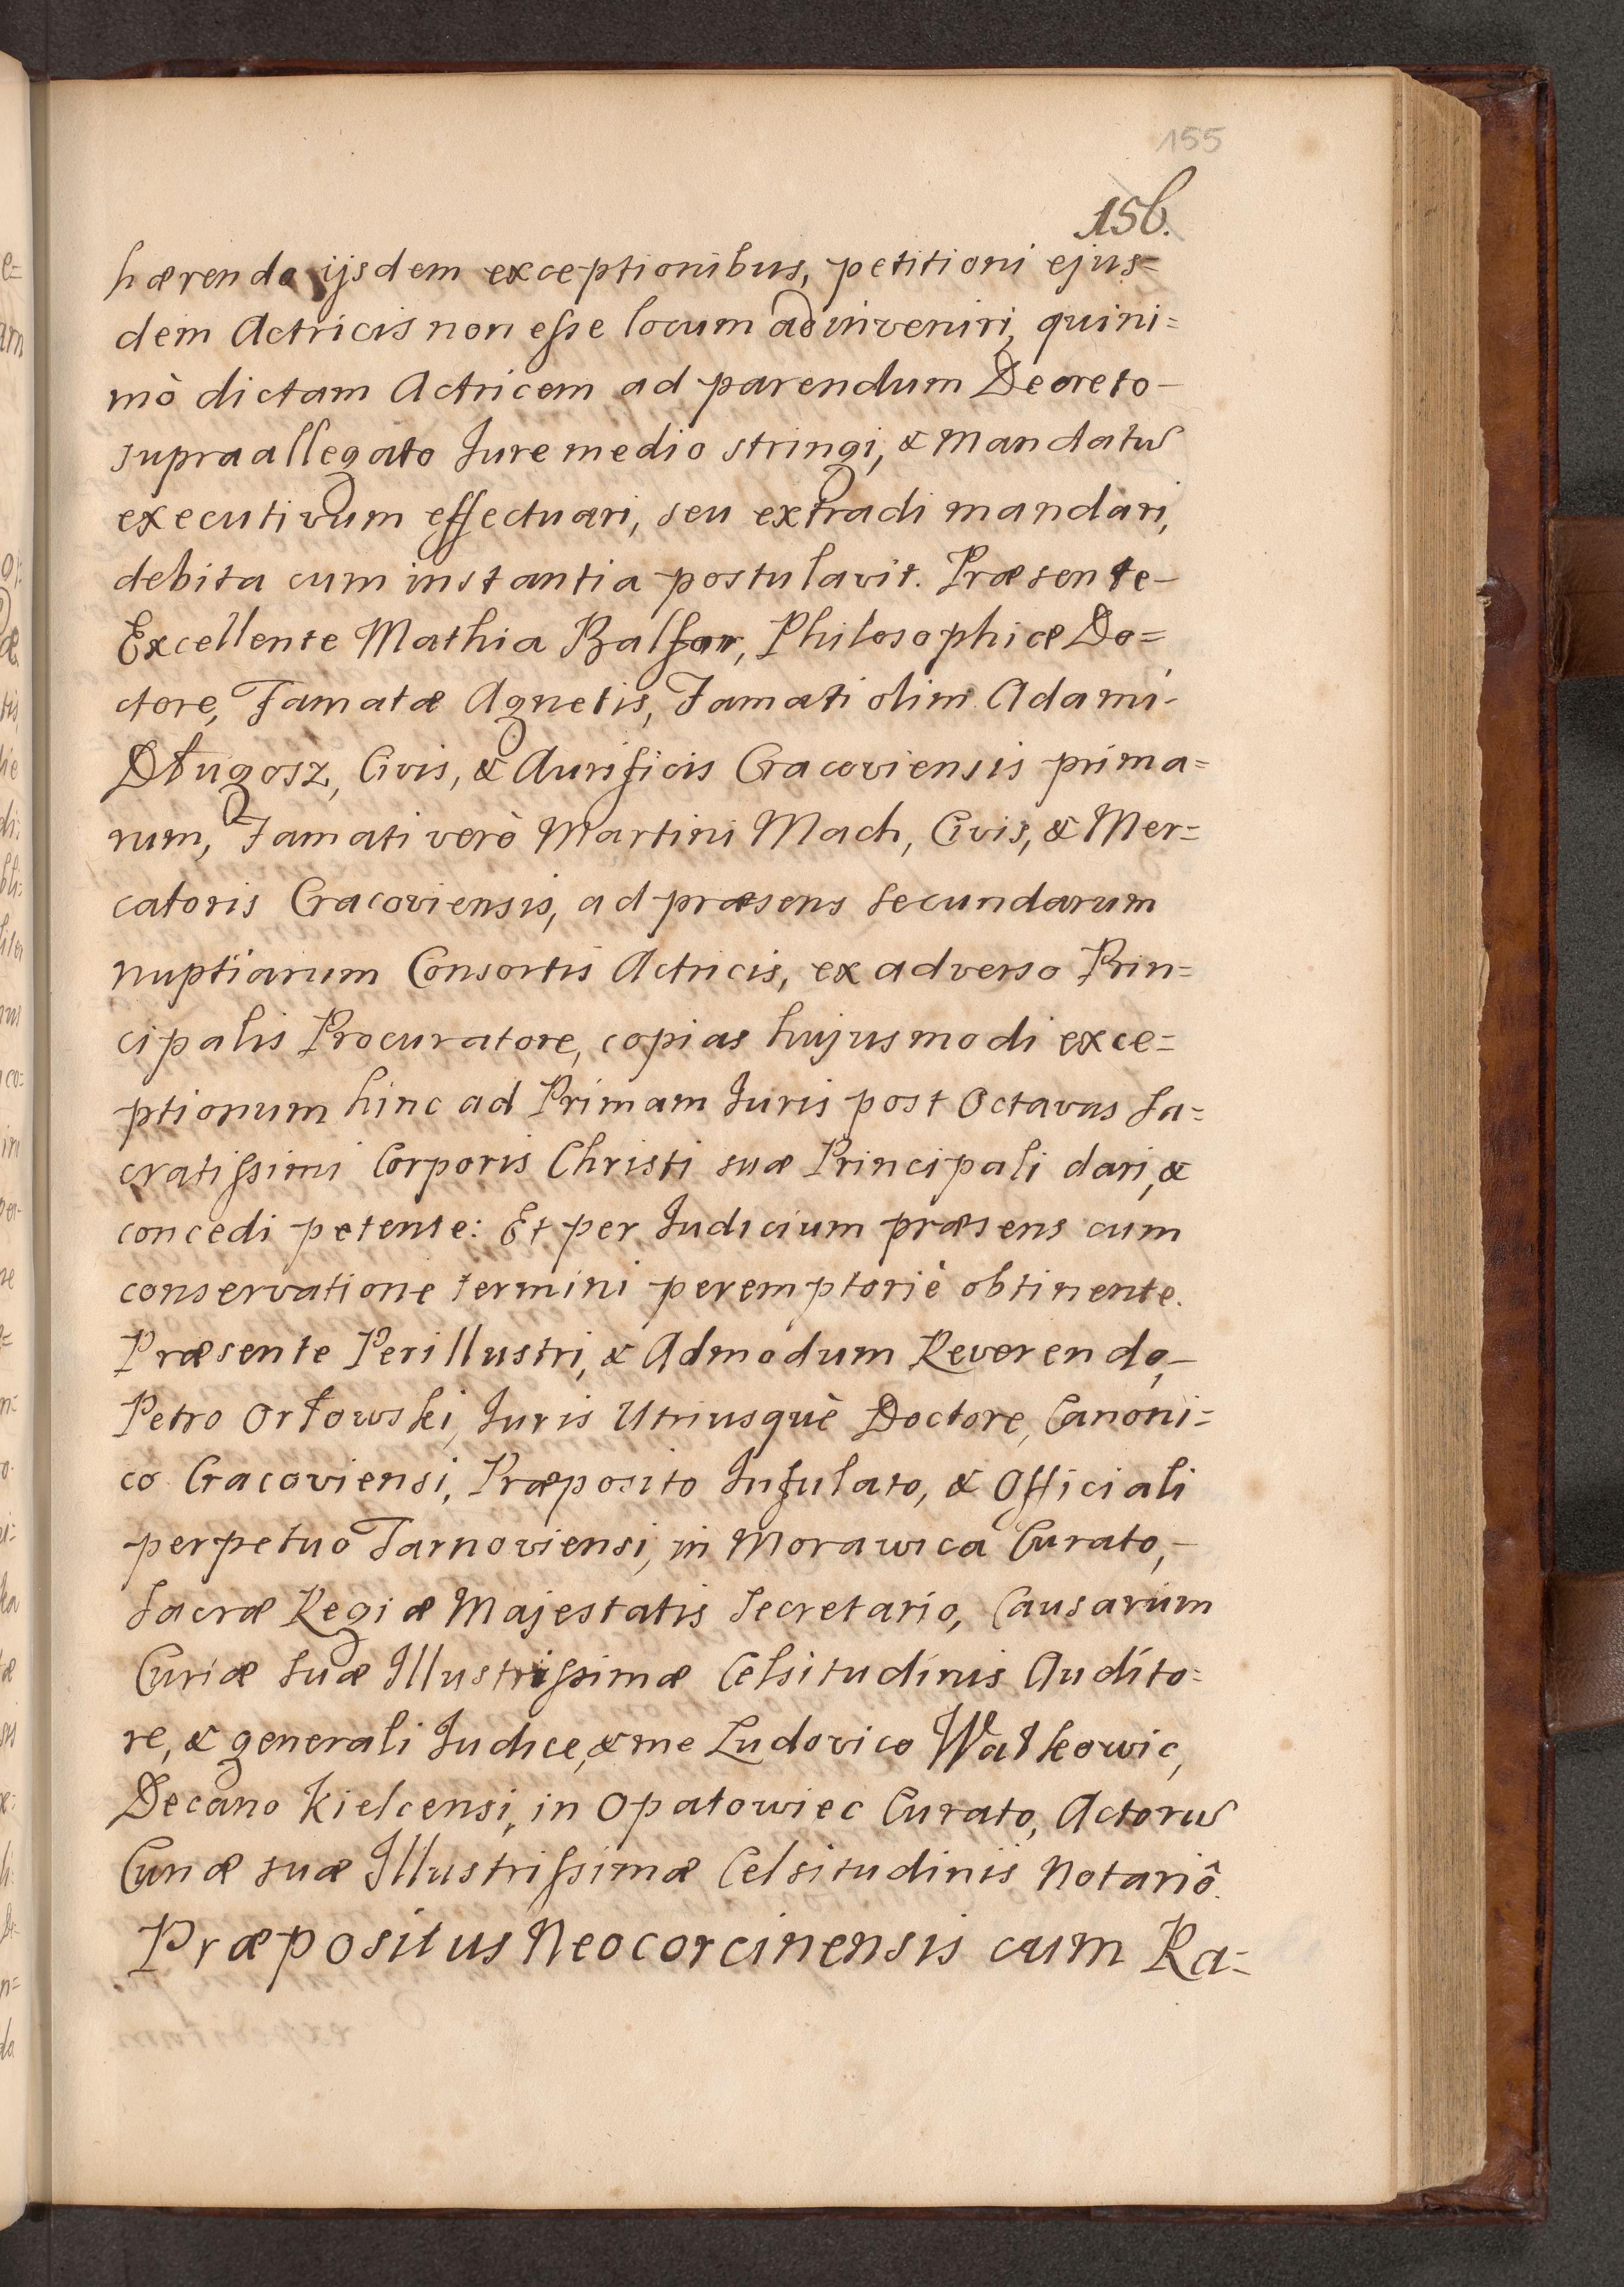 155
156.
hærendo ijsdem exceptionibus, petitioni ejus=
dem Actricis non esse locum adinveniri, quini=
mò dictam Actricem ad parendum Decreto–
supraallegato Jure medio stringi, & Mandatu
executivum effectuari, seu extradi mandari,
debita cum instantia postulavit. Præsente–
Excellente Mathia Balsam, Philosophiæ Do=
ctore, Famatæ Agnetis, Famati olim Adami-
Długosz, Civis, & Aurificis Cracoviensis prima=
rum, Famati verò Martini Mach, Civis, & Mer=
catoris Cracoviensis, ad præsens secundarum
nuptiarum Consortis Actricis, ex adverso Prin=
cipalis Procuratore, copias hujusmodi exce=
ptionum hinc ad Primam Juris post Octavas Sa=
cratissimi Corporis Christi suæ Principali dari, &
concedi petente: Et per Judicium præsens cum
conservatione termini peremptoriè obtinente.
Præsente Perillustri, & Admodum Reverendo,–
Petro Orłowski, Juris Utriusquè Doctore, Canoni=
co Cracoviensi, Præposito Infulato, & Officiali
perpetuo Tarnoviensi, in Morawica Curato,–
Sacræ Regiæ Majestatis Secretario, Causarum
Curiæ Suæ Illustrissimæ Celsitudinis Audito=
re, & generali Judice, & me Ludovico Watkowic,
Decano Kielcensi, in Opatowiec Curato, Actoru
Curiæ suæ Illustrissimæ Celsitudinis Notariô.
Præpositus Neocorcinensis cum Ra=